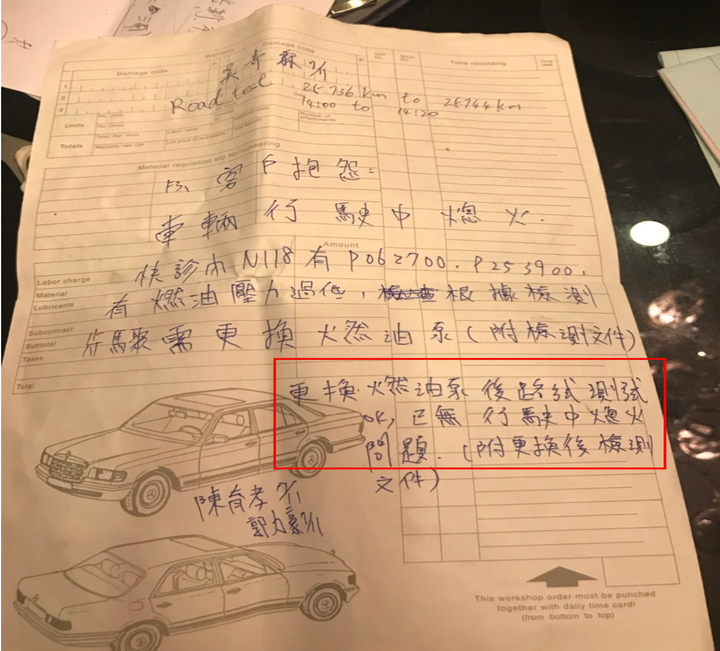 Damage code
Damage code
Time recording
1
2
3
Road test 25.736 km to 25744 km
14:00 to 14:20
Units
Totals
Material requisition slip No/numbering
F3, 客戶抱怨:
車輛行駛中熄火.
Amount
快診內 N118 有 P062700. P253900,
Labor charge
Material
Lubricants
有燃油壓力過低, 根據檢測
Subcontract
Subtotal
Taxes
步驟需更換燃油泵(附檢測文件)
Total
更換燃油泵後路試測試
OK, 已無行駛中熄火
問題. (附更換後檢測
文件)
陳育孝 7/1
7/1
This workshop order must be punched
together with daily time card!
(from bottom to top)